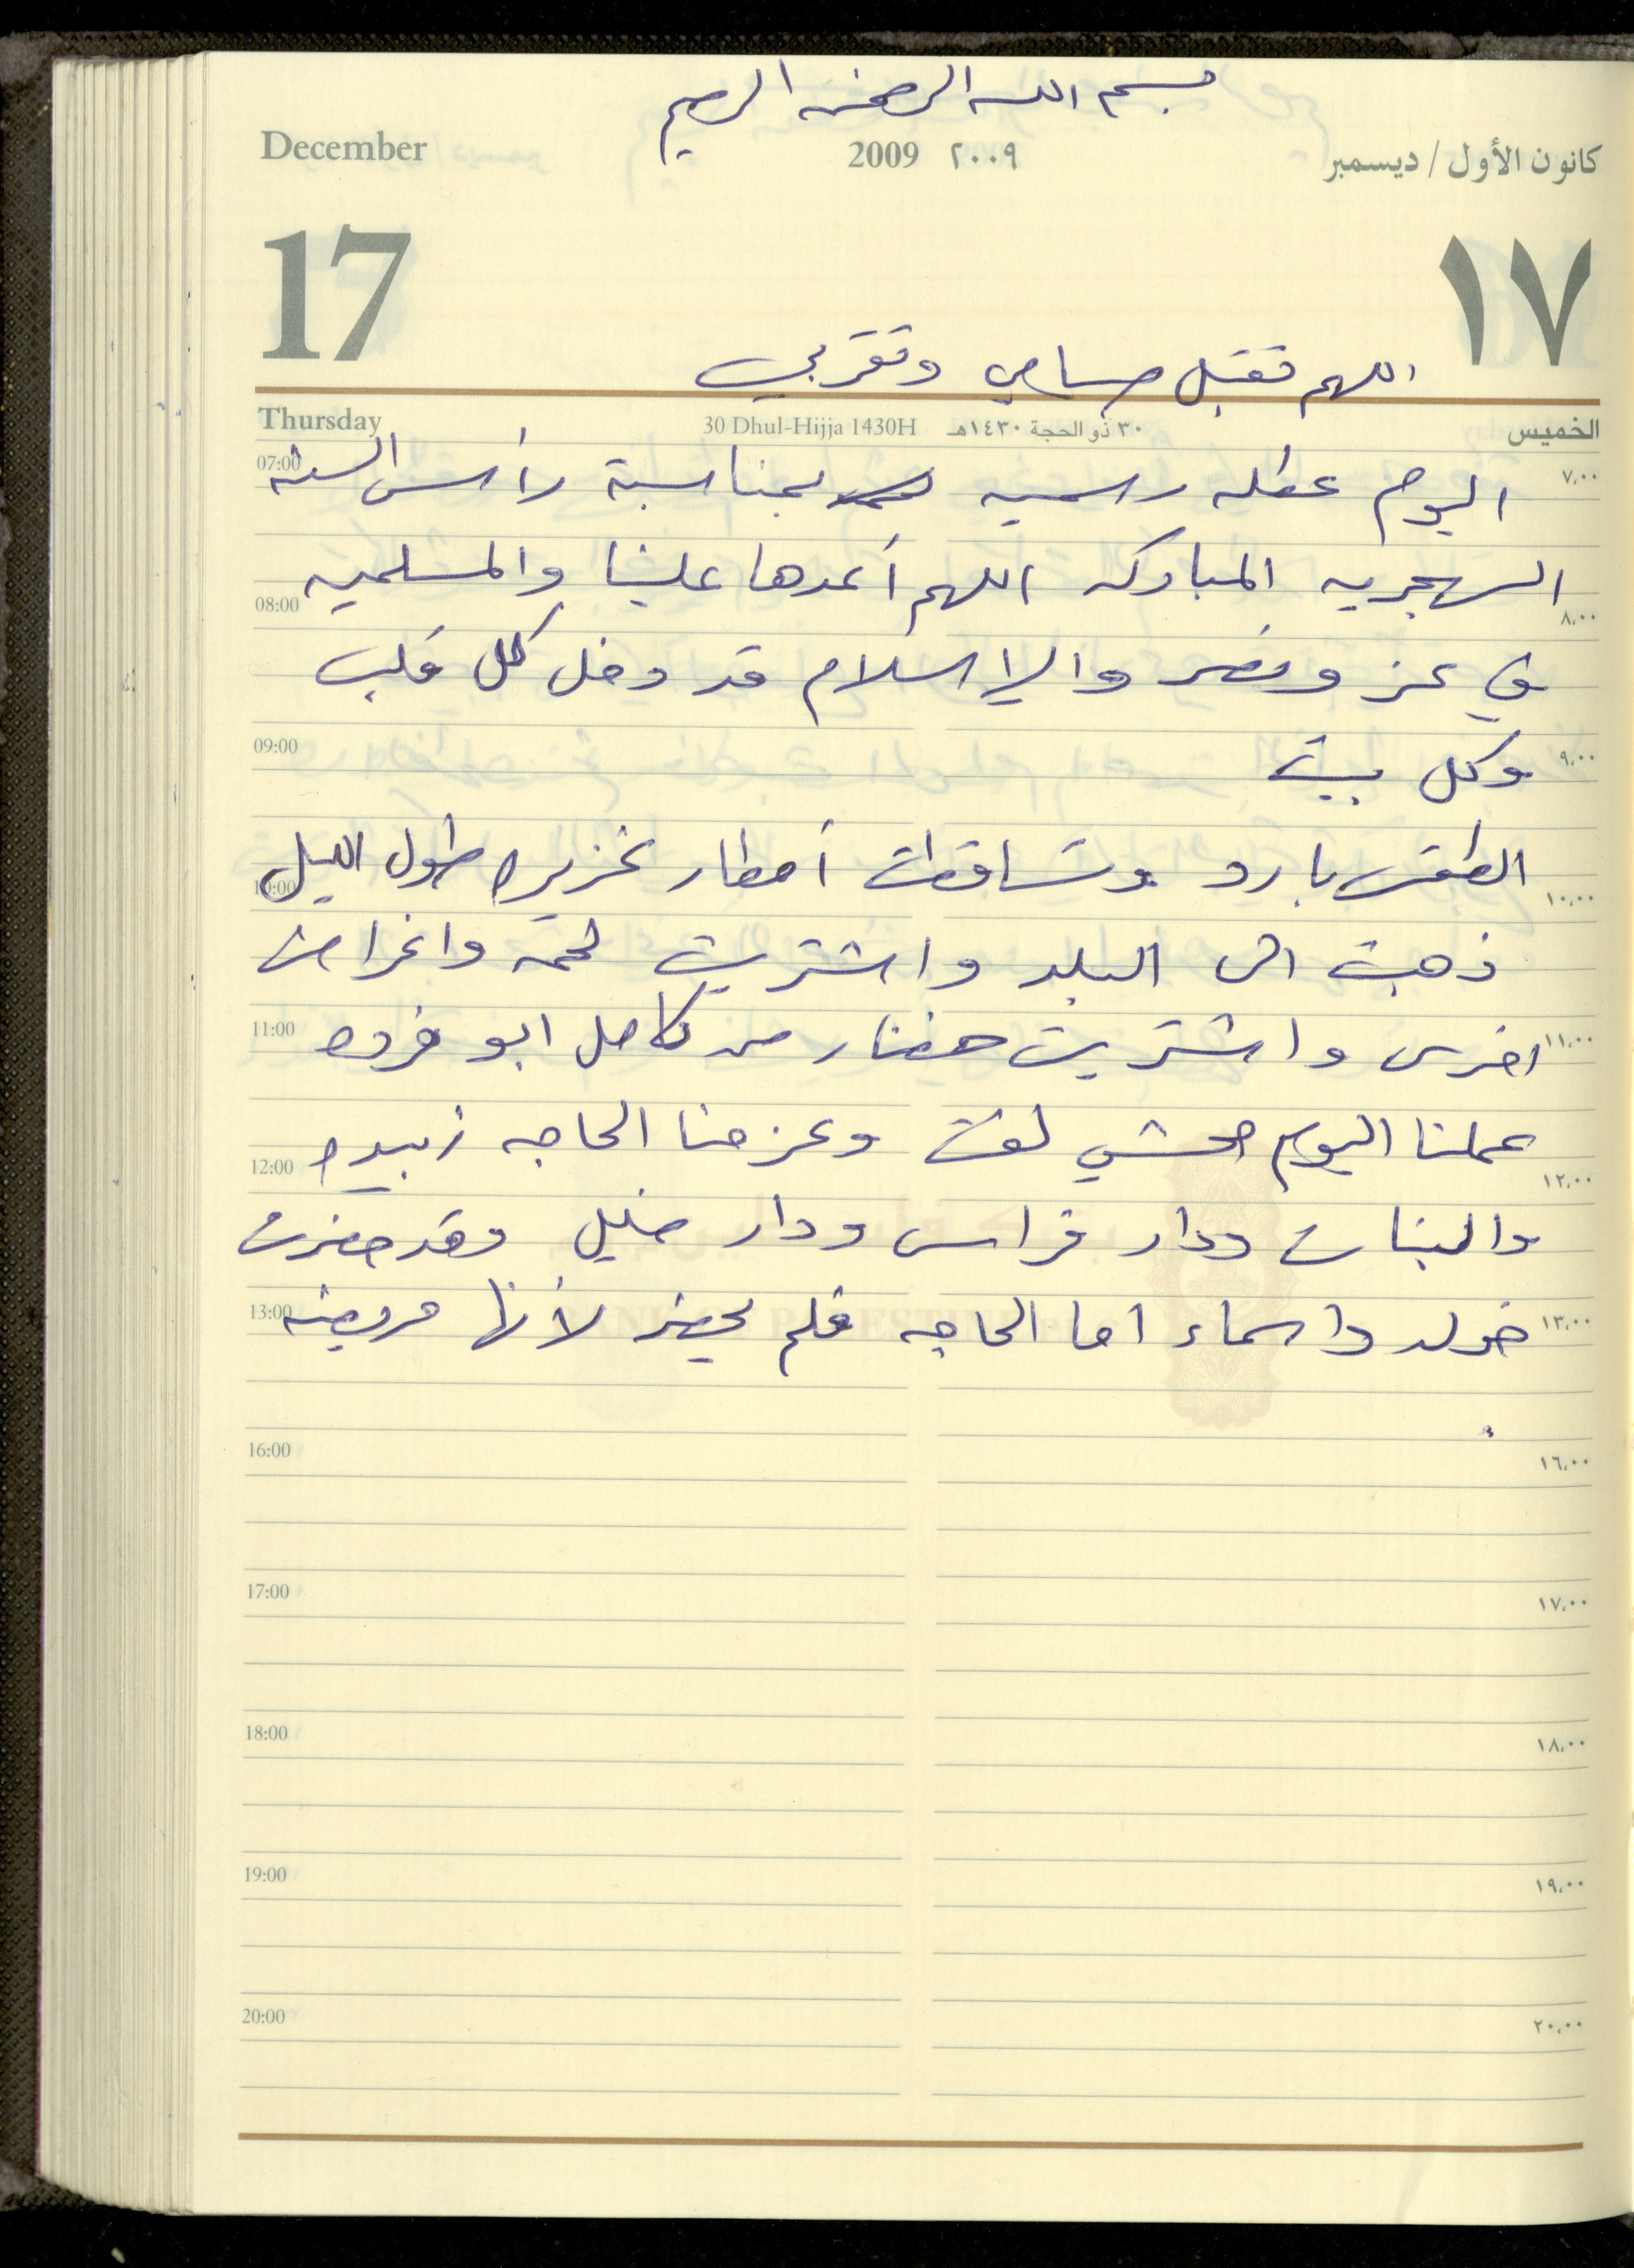 بسم الله الرحمن الرحيم
December 2009 ٢٠٠٩ كانون الأول / ديسمبر
17 ١٧
اللهم تقبل صيامي وتقربي
Thursday 30 Dhul-Hijja 1430H ٣٠ ذو الحجة ١٤٣٠هـ الخميس
07:00 ٧,٠٠
اليوم عطله رسميه بمناسبة رأس السنه
الهجريه المباركه اللهم أعدها علينا والمسلمين
08:00 ٨,٠٠
في عز ونصر والإسلام قد دخل كل قلب
09:00 ٩,٠٠
وكل بيت
الطقس بارد وتساقطت أمطار غزيره طول الليل
10:00 ١٠,٠٠
ذهبت الى البلد واشتريت لحمه واغراض
11:00 ١١,٠٠
اخرى واشتريت خضار من كامل ابو فروه
عملنا اليوم محشي لفت وعزمنا الحاجه زبيده
12:00 ١٢,٠٠
والبنات ودار فراس ودار خليل وقد حضرت
13:00 ١٣,٠٠
خولد واسماء اما الحاجه فلم تحضر لأنها مريضه
16:00 ١٦,٠٠
17:00 ١٧,٠٠
18:00 ١٨,٠٠
19:00 ١٩,٠٠
20:00 ٢٠,٠٠